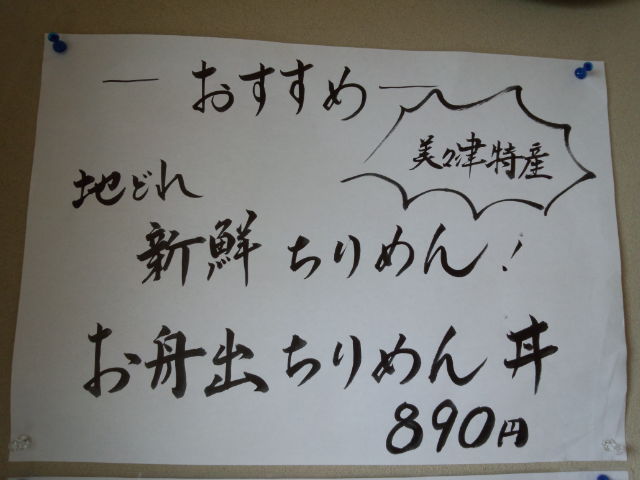 おすすめ
美々津特産
地どれ
新鮮ちりめん!
お舟出ちりめん丼
890円